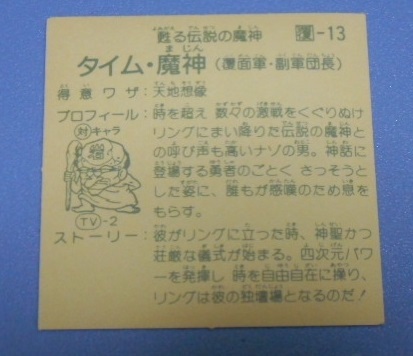 甦る伝説の魔神
覆-13
タイム・魔神(覆面軍・副軍団長)
得意ワザ:天地想像
プロフィール:時を超え 数々の激戦をくぐりぬけ
リングにまい降りた伝説の魔神と
の呼び声も高いナゾの男。神話に
登場する勇者のごとく さっそうと
した姿に、誰もが感嘆のため息を
もらす。
対キャラ
TV-2
ストーリー:彼がリングに立った時、神聖かつ
荘厳な儀式が始まる。四次元パワ
ーを発揮し 時を自由自在に操り、
リングは彼の独壇場となるのだ!